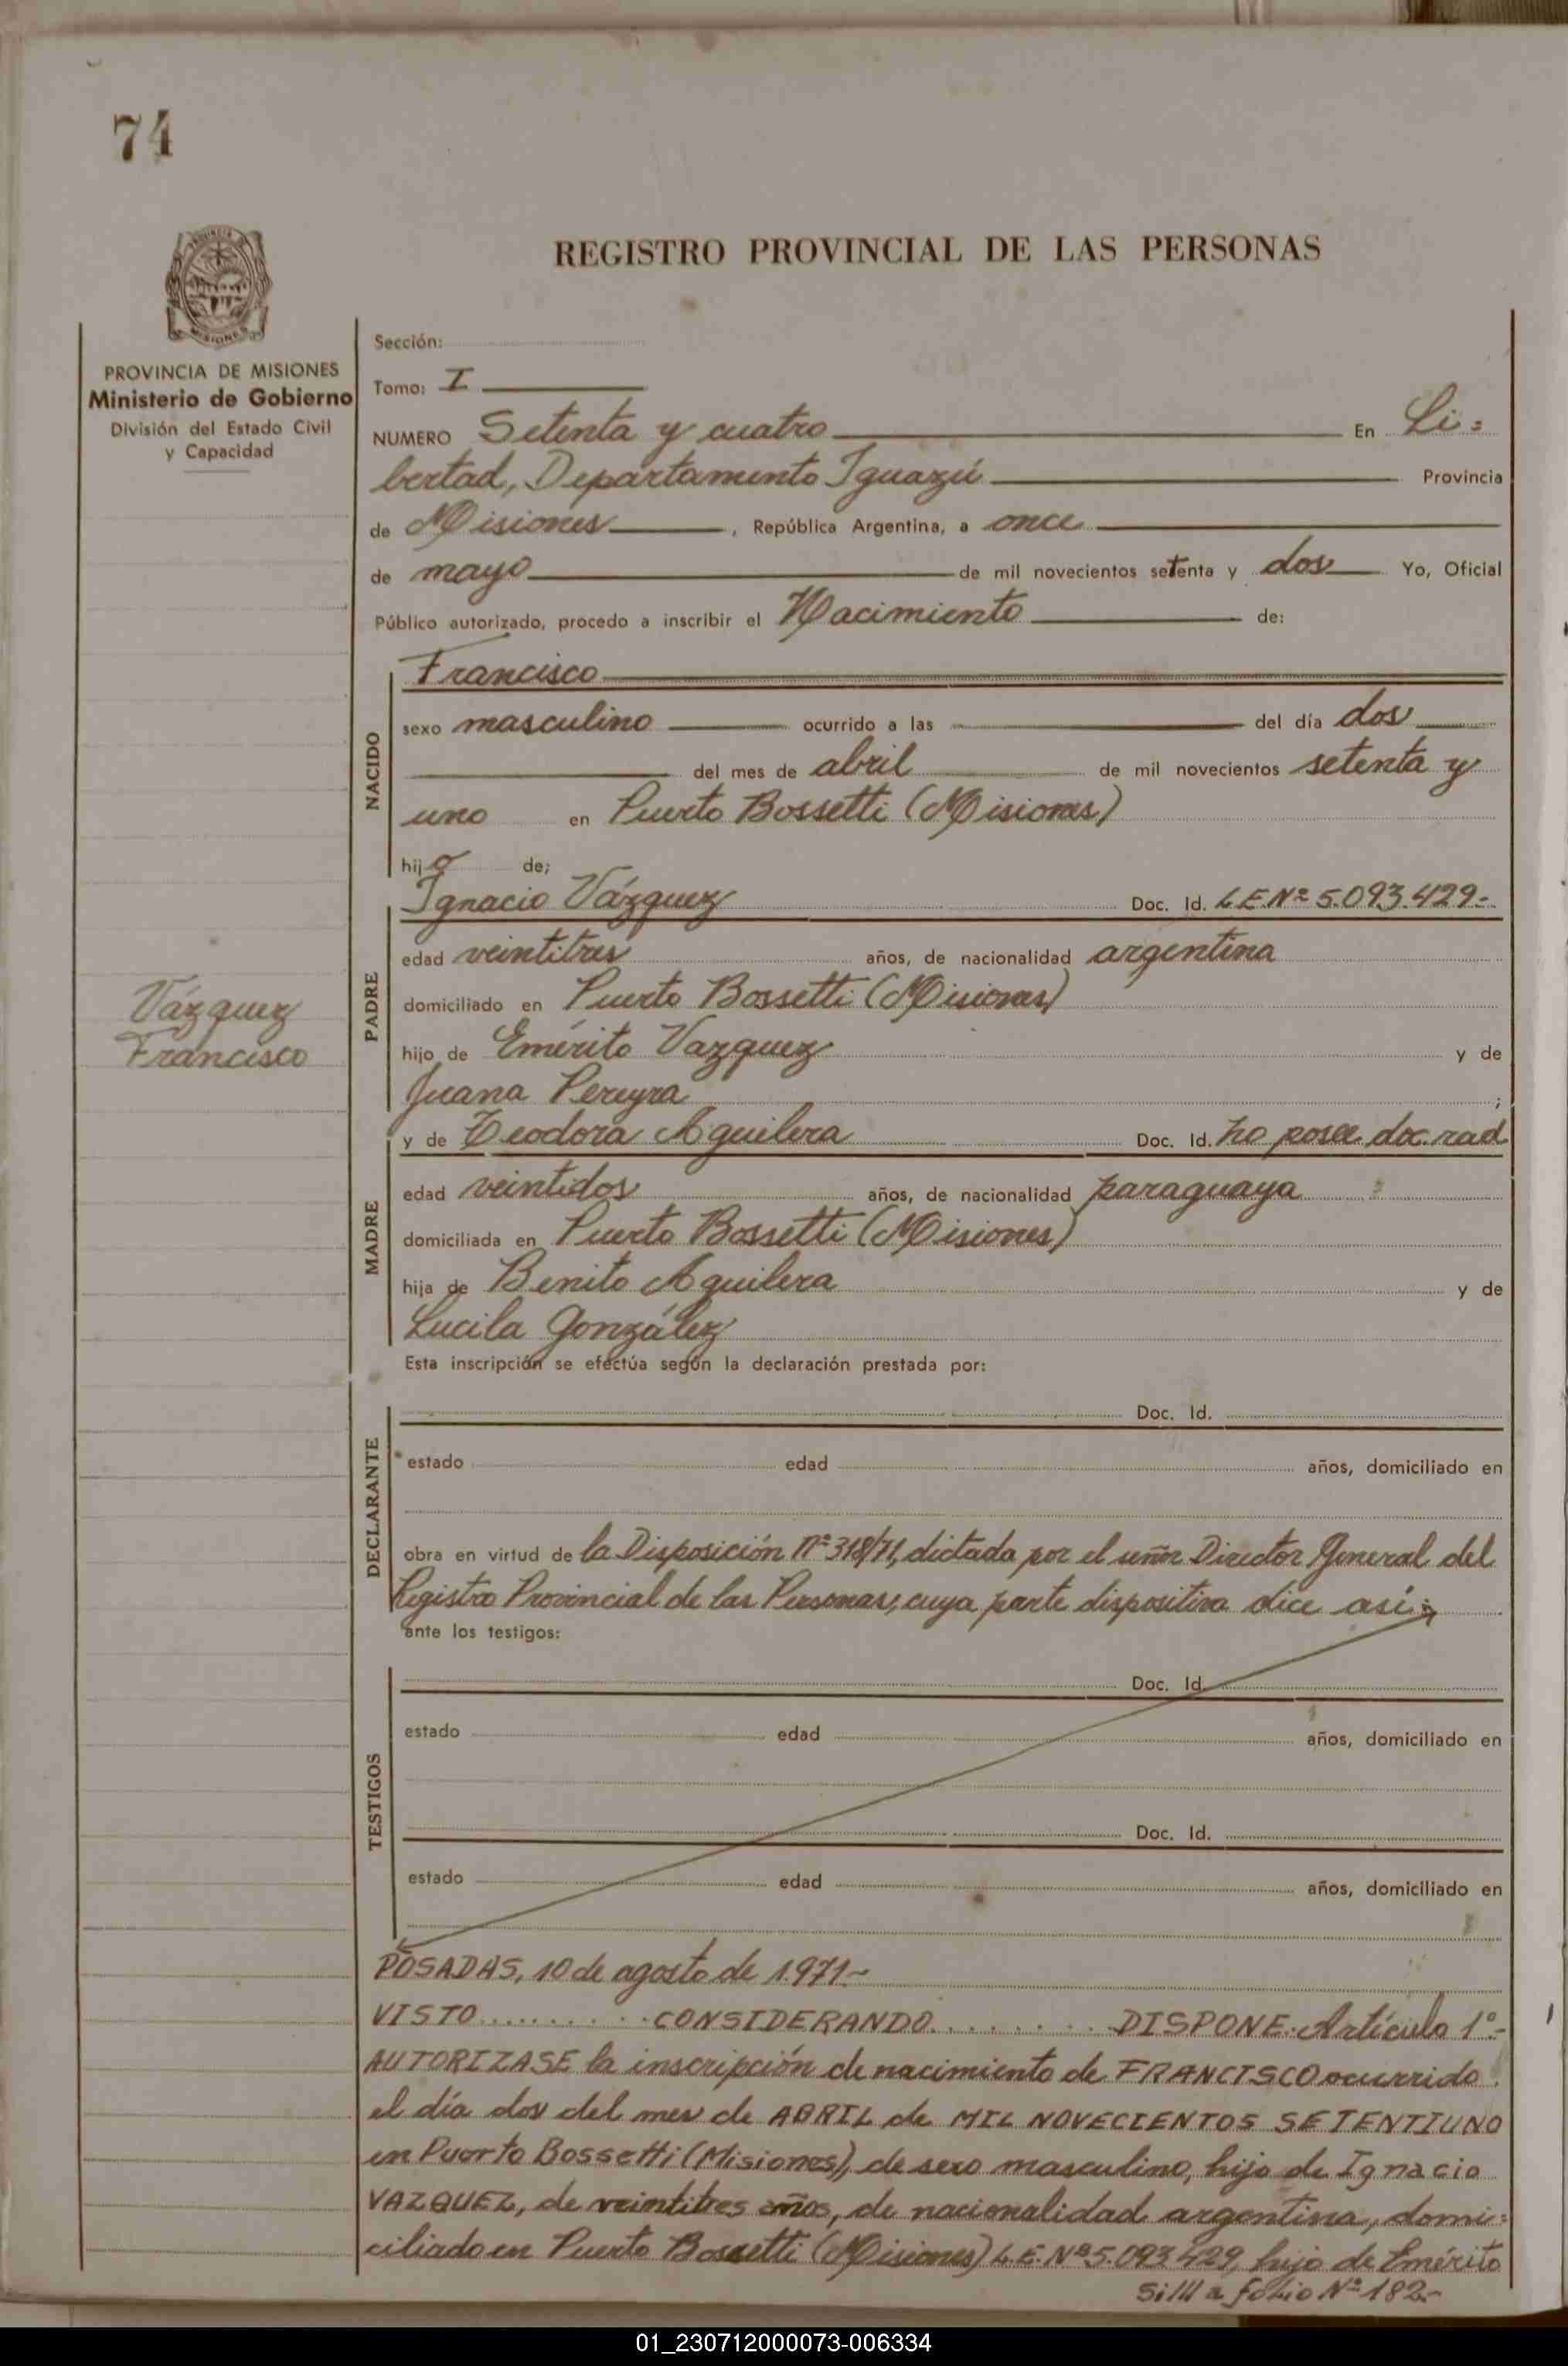 74
REGISTRO PROVINCIAL DE LAS PERSONAS
PROVINCIA DE MISIONES
Ministerio de Gobierno
División del Estado Civil
y Capacidad
Sección:
Tomo: I
NUMERO Setenta y cuatro En Li=
bertad, Departamento Iguazú Provincia
de Misiones, República Argentina, a once
de mayo de mil novecientos setenta y dos Yo, Oficial
Público autorizado, procedo a inscribir el Nacimiento de:
NACIDO
Francisco
sexo masculino ocurrido a las del día dos
del mes de abril de mil novecientos setenta y
uno en Puerto Bossetti (Misiones)
hijo de;
PADRE
Ignacio Vázquez Doc. Id. L.E.Nº 5.093.429.-
edad veintitres años, de nacionalidad argentina
domiciliado en Puerto Bossetti (Misiones)
hijo de Emérito Vazquez y de
Juana Pereyra ;
Vázquez
Francisco
MADRE
y de Teodora Aguilera Doc. Id. no posee doc. rad
edad veintidos años, de nacionalidad paraguaya
domiciliada en Puerto Bossetti (Misiones)
hija de Benito Aguilera y de
Lucila González
Esta inscripción se efectúa según la declaración prestada por:
DECLARANTE
Doc. Id.
estado edad años, domiciliado en
obra en virtud de la Disposición Nº 318/71, dictada por el señor Director General del
Registro Provincial de las Personas, cuya parte dispositiva dice así:
ante los testigos:
TESTIGOS
Doc. Id.
estado edad años, domiciliado en
Doc. Id.
estado edad años, domiciliado en
POSADAS, 10 de agosto de 1.971.-
VISTO.......... CONSIDERANDO......... DISPONE: Artículo 1º.-
AUTORIZASE la inscripción de nacimiento de FRANCISCO ocurrido
el día dos del mes de ABRIL de MIL NOVECIENTOS SETENTIUNO
en Puerto Bossetti (Misiones), de sexo masculino, hijo de Ignacio
VAZQUEZ, de veintitres años, de nacionalidad argentina, domi=
ciliado en Puerto Bossetti (Misiones) L.E. Nº 5.093.429, hijo de Emérito
a folio Nº 182.-
01_230712000073-006334